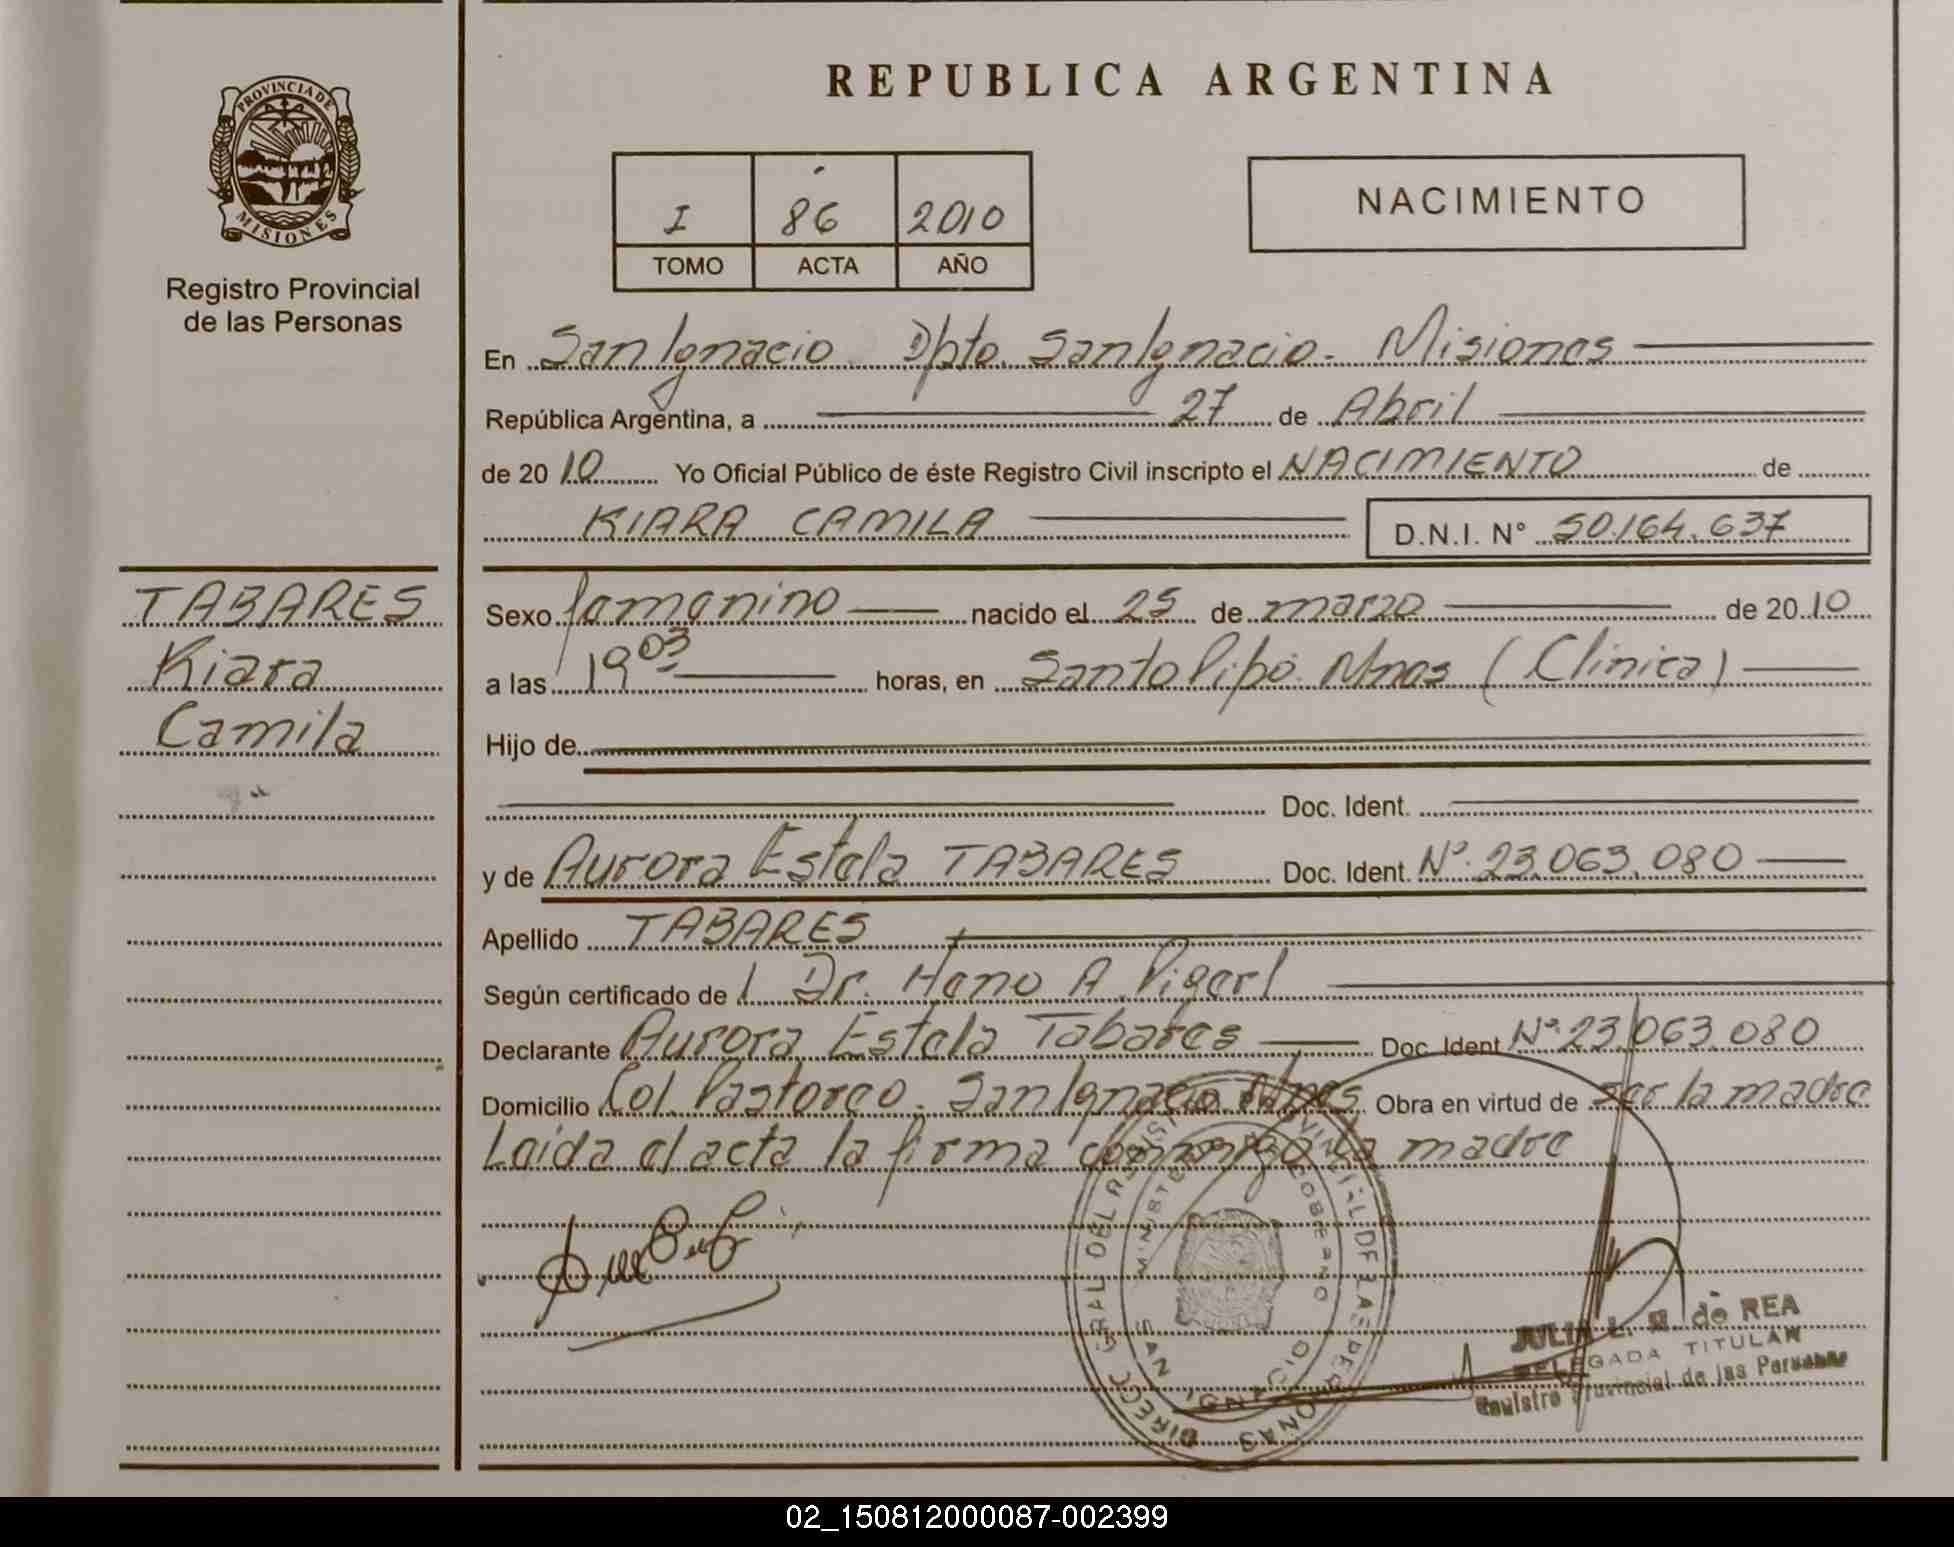 REPUBLICA ARGENTINA
PROVINCIA DE MISIONES
Registro Provincial
de las Personas
I 86 2010
TOMO ACTA AÑO
NACIMIENTO
En San Ignacio Dpto. San Ignacio - Misiones
República Argentina, a 27 de Abril
de 20 10 Yo Oficial Público de éste Registro Civil inscripto el NACIMIENTO de
KIARA CAMILA D.N.I. N° 50.164.637
TABARES
Kiara
Camila
Sexo femenino nacido el 25 de marzo de 20 10
a las 19 03 horas, en Santo Pipó Mnes (Clínica)
Hijo de
Doc. Ident.
y de Aurora Estela TABARES Doc. Ident. Nº 23.063.080
Apellido TABARES
Según certificado de l Dr. A.
Declarante Aurora Estela Tabares Doc. Ident Nº 23.063.080
Domicilio Col. Pastoreo. San Ignacio Mnes Obra en virtud de ser la madre
Leída el acta la firma conmigo la madre
DIRECC. GRAL. DEL REGISTRO PROVINCIAL DE LAS PERSONAS
MINISTERIO DE GOBIERNO
SAN IGNACIO
JULIA L. de REA
DELEGADA TITULAR
Registro Provincial de las Personas
02_150812000087-002399